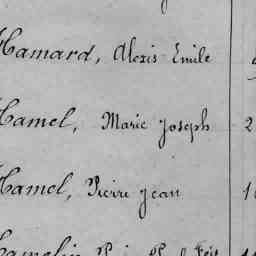 Hamard, Alexis Emile
Hamel, Marie Joseph 2
Hamel, Pierre Jean 1
Hamelin